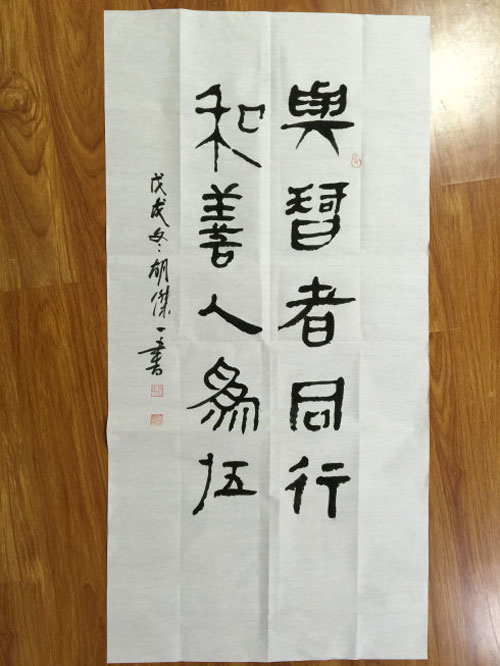 與智者同行
和善人為伍
戊戌冬胡傑一書